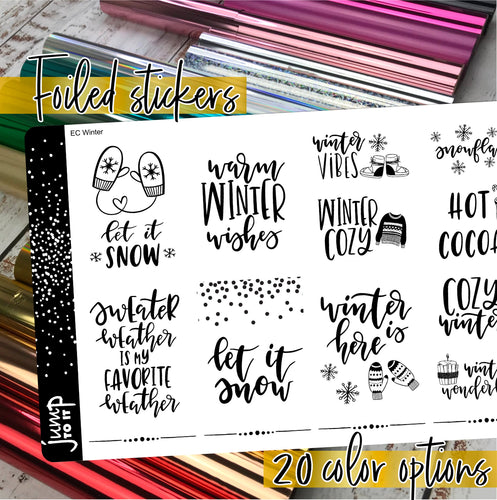 Foiled stickers
EC Winter
let it
SNOW
warm
WINTER
wishes
winter
VIBES
WINTER
COZY
HOT
COCOA
sweater
weather
IS MY
FAVORITE
weather
let it
snow
winter
here is
COZY
winter
jump
TO IT
20 color options